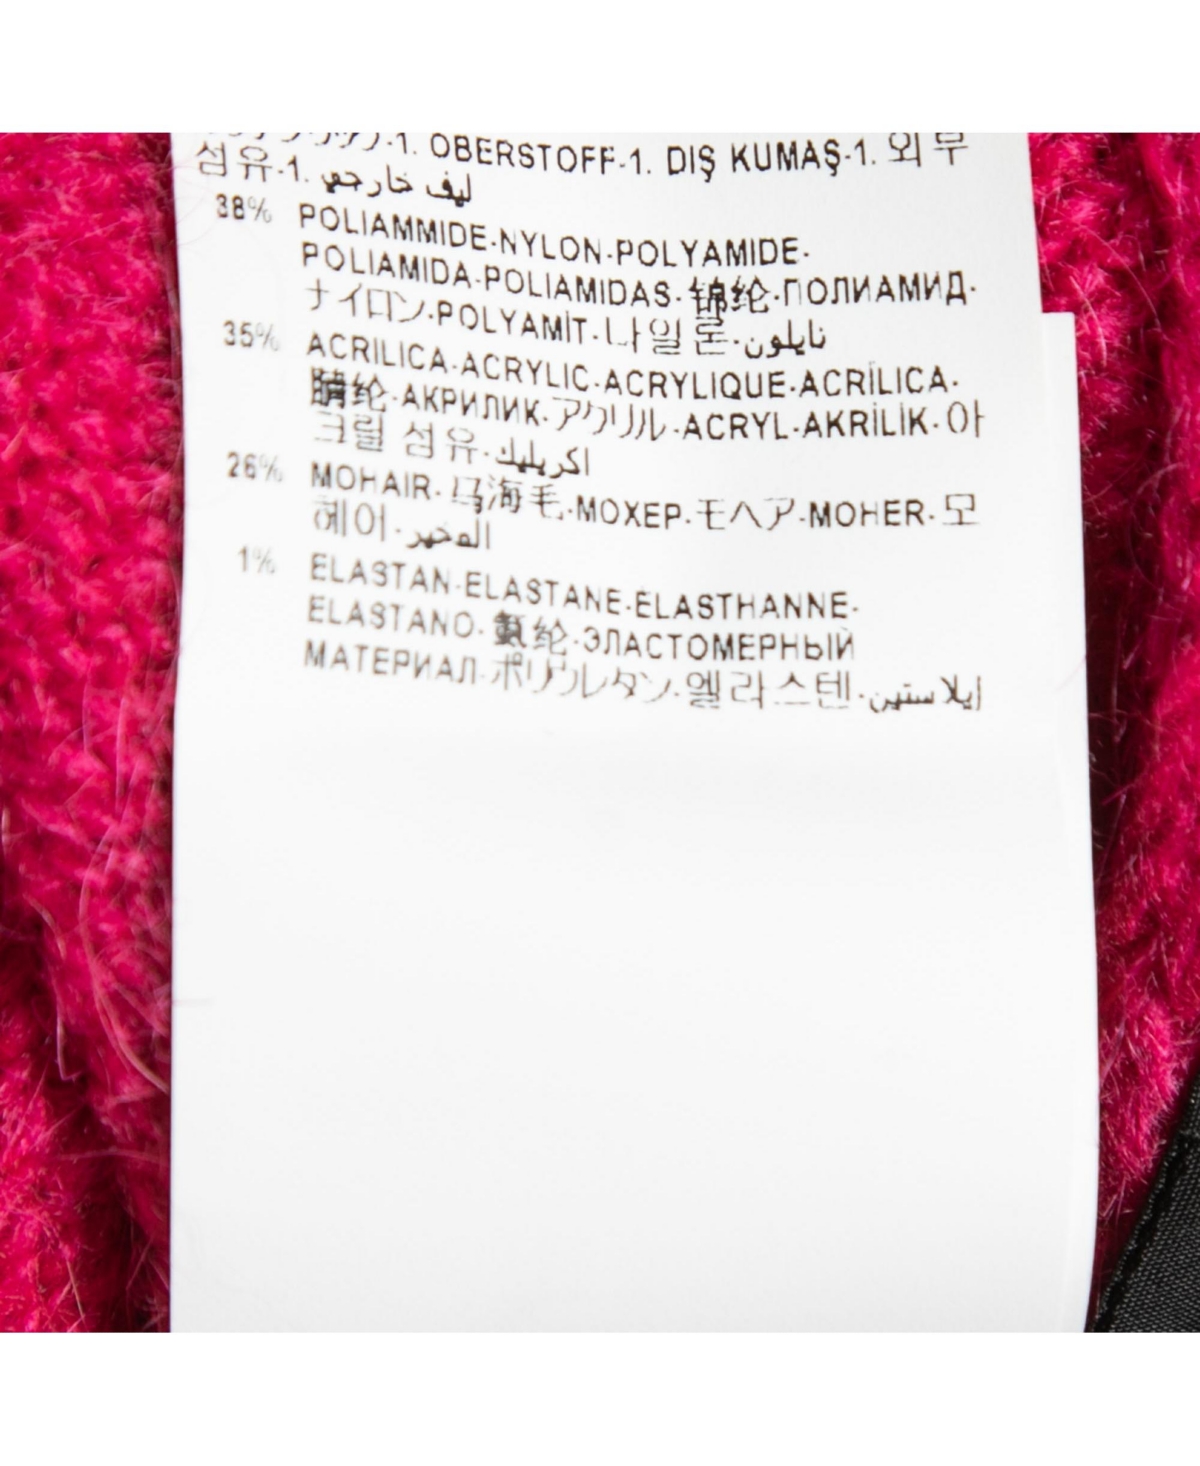 -1. OBERSTOFF-1. DIŞ KUMAŞ-1. 외부
섬유-1. ليف خارجي
38% POLIAMMIDE-NYLON-POLYAMIDE-
POLIAMIDA-POLIAMIDAS-锦纶-ПОЛИАМИД-
ナイロン-POLYAMİT-나일론-نايلون
35% ACRILICA-ACRYLIC-ACRYLIQUE-ACRÍLICA-
腈纶-АКРИЛИК-アクリル-ACRYL-AKRİLİK-아
크릴 섬유-اكريليك
26% MOHAIR-马海毛-МОХЕР-モヘア-MOHER-모
헤어-الموخير
1% ELASTAN-ELASTANE-ÉLASTHANNE-
ELASTANO-氨纶-ЭЛАСТОМЕРНЫЙ
МАТЕРИАЛ-ポリウレタン-엘라스텐-إيلاستين